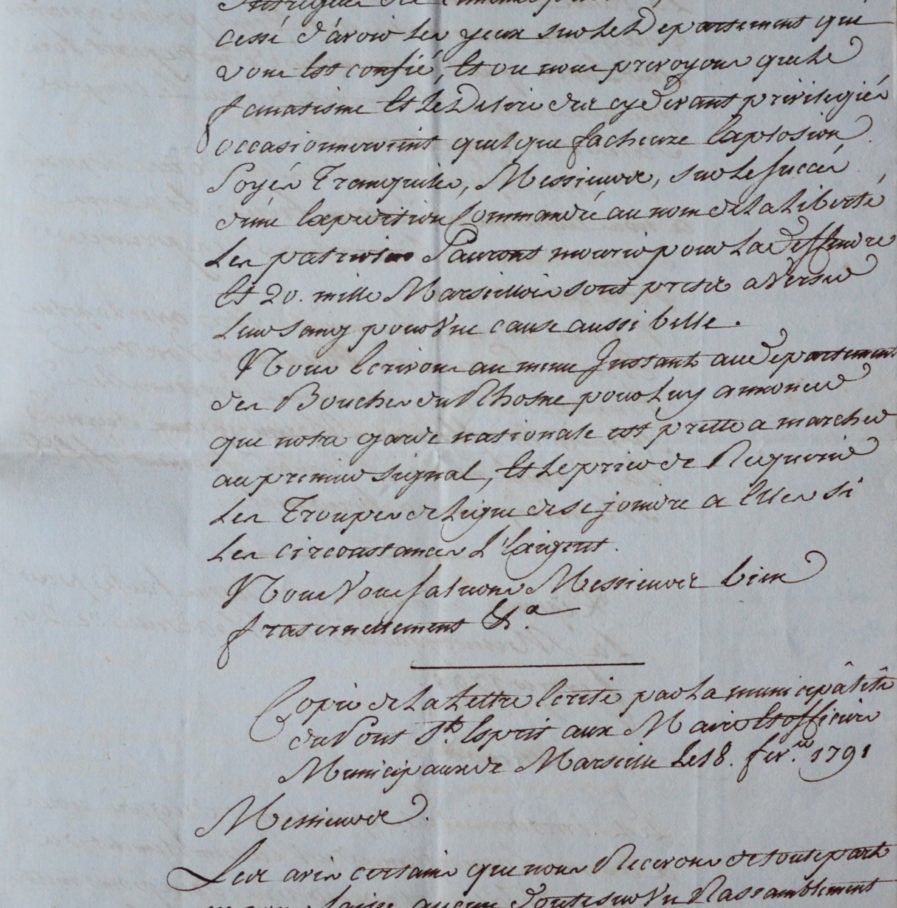 cessé d'avoir les yeux sur le Departement qui
vous Est confié, Et ou nous prevoyons que le
fanatisme Et le Delire des cydevant privilegiés
occasionneroient quelque facheuse Explosion
Soyés Tranquiles, Messieurs, sur le succés
d'une Expedition Commandée au nom de la Liberté
Les patriotes Sauront mourir pour La deffendre
Et 20. mille Marseillois sont prets a Verser
Leur sang pour Une cause aussi belle.
Nous Ecrivons au meme Instant au departement
des Bouches du Rhosne pour Luy annoncer
que notre garde nationale est prette a marcher
au premier signal, Et Le prier de Requerir
Les Troupes de Ligne de se joindre a Elles si
Les circonstances L'Exigent.
Nous Vous saluons Messieurs bien
fraternellement &.a
Copie de La Lettre Ecrite par La municipalité
du Pont St. Esprit aux Maire Et officiers
Municipaux de Marseille Le 18. fevr. 1791
Messieurs.
Les avis certains que nous Recevons de toute part
laisse aucun doute sur Un Rassemblement